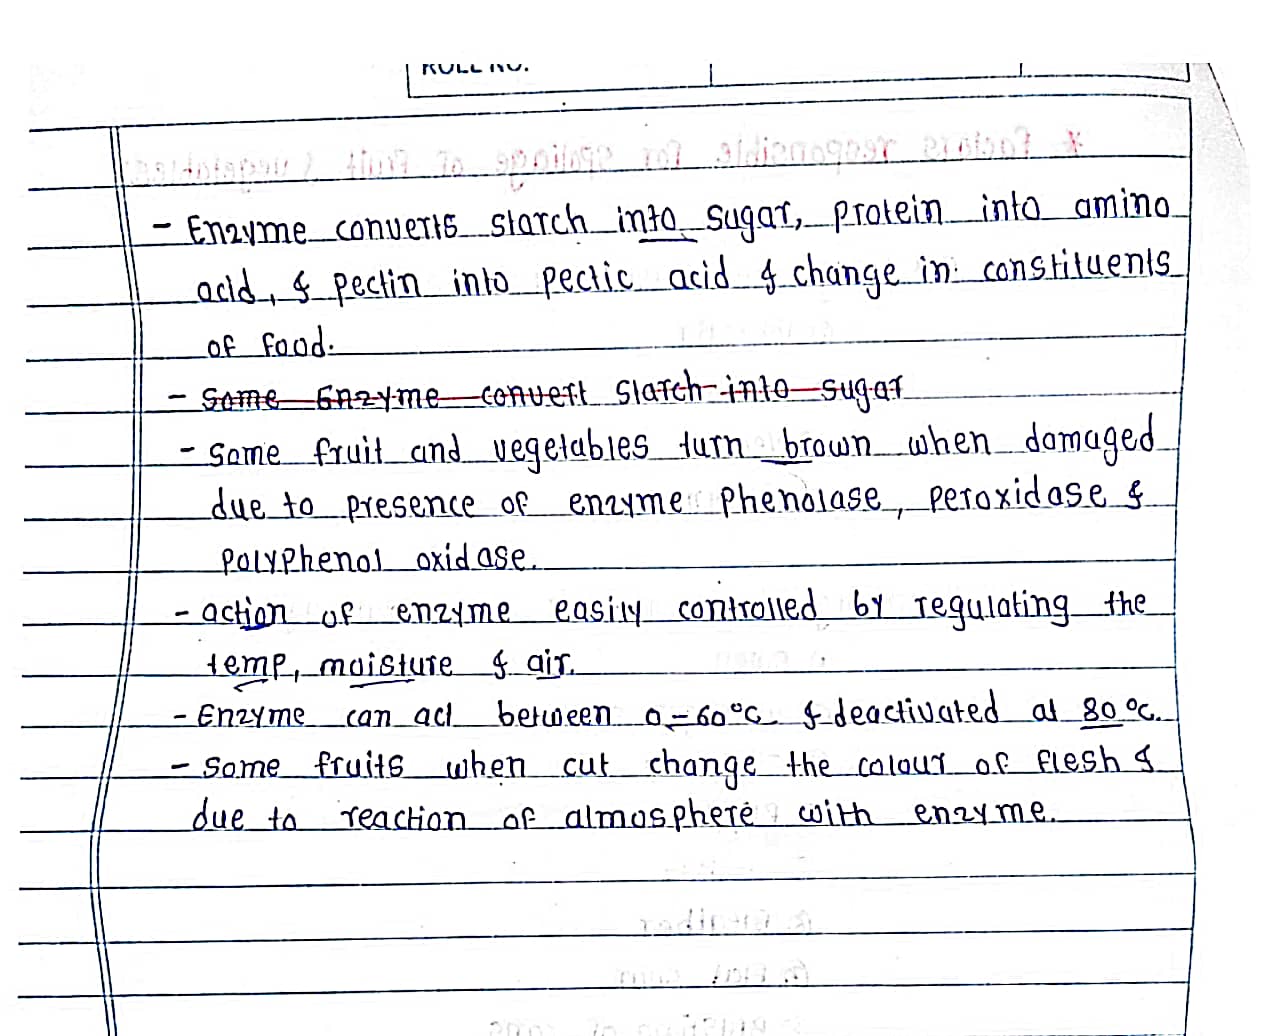 ROLL NO.
- Enzyme converts starch into sugar, protein into amino
acid, & pectin into pectic acid & change in constituents
of food.
- Some Enzyme convert starch into sugar
- Some fruit and vegetables turn brown when damaged
due to presence of enzyme phenolase, peroxidase &
polyphenol oxidase.
- action of enzyme easily controlled by regulating the
temp, moisture & air.
- Enzyme can act between 0-60°c & deactivated at 80°c.
- Some fruits when cut change the colour of flesh &
due to reaction of atmosphere with enzyme.